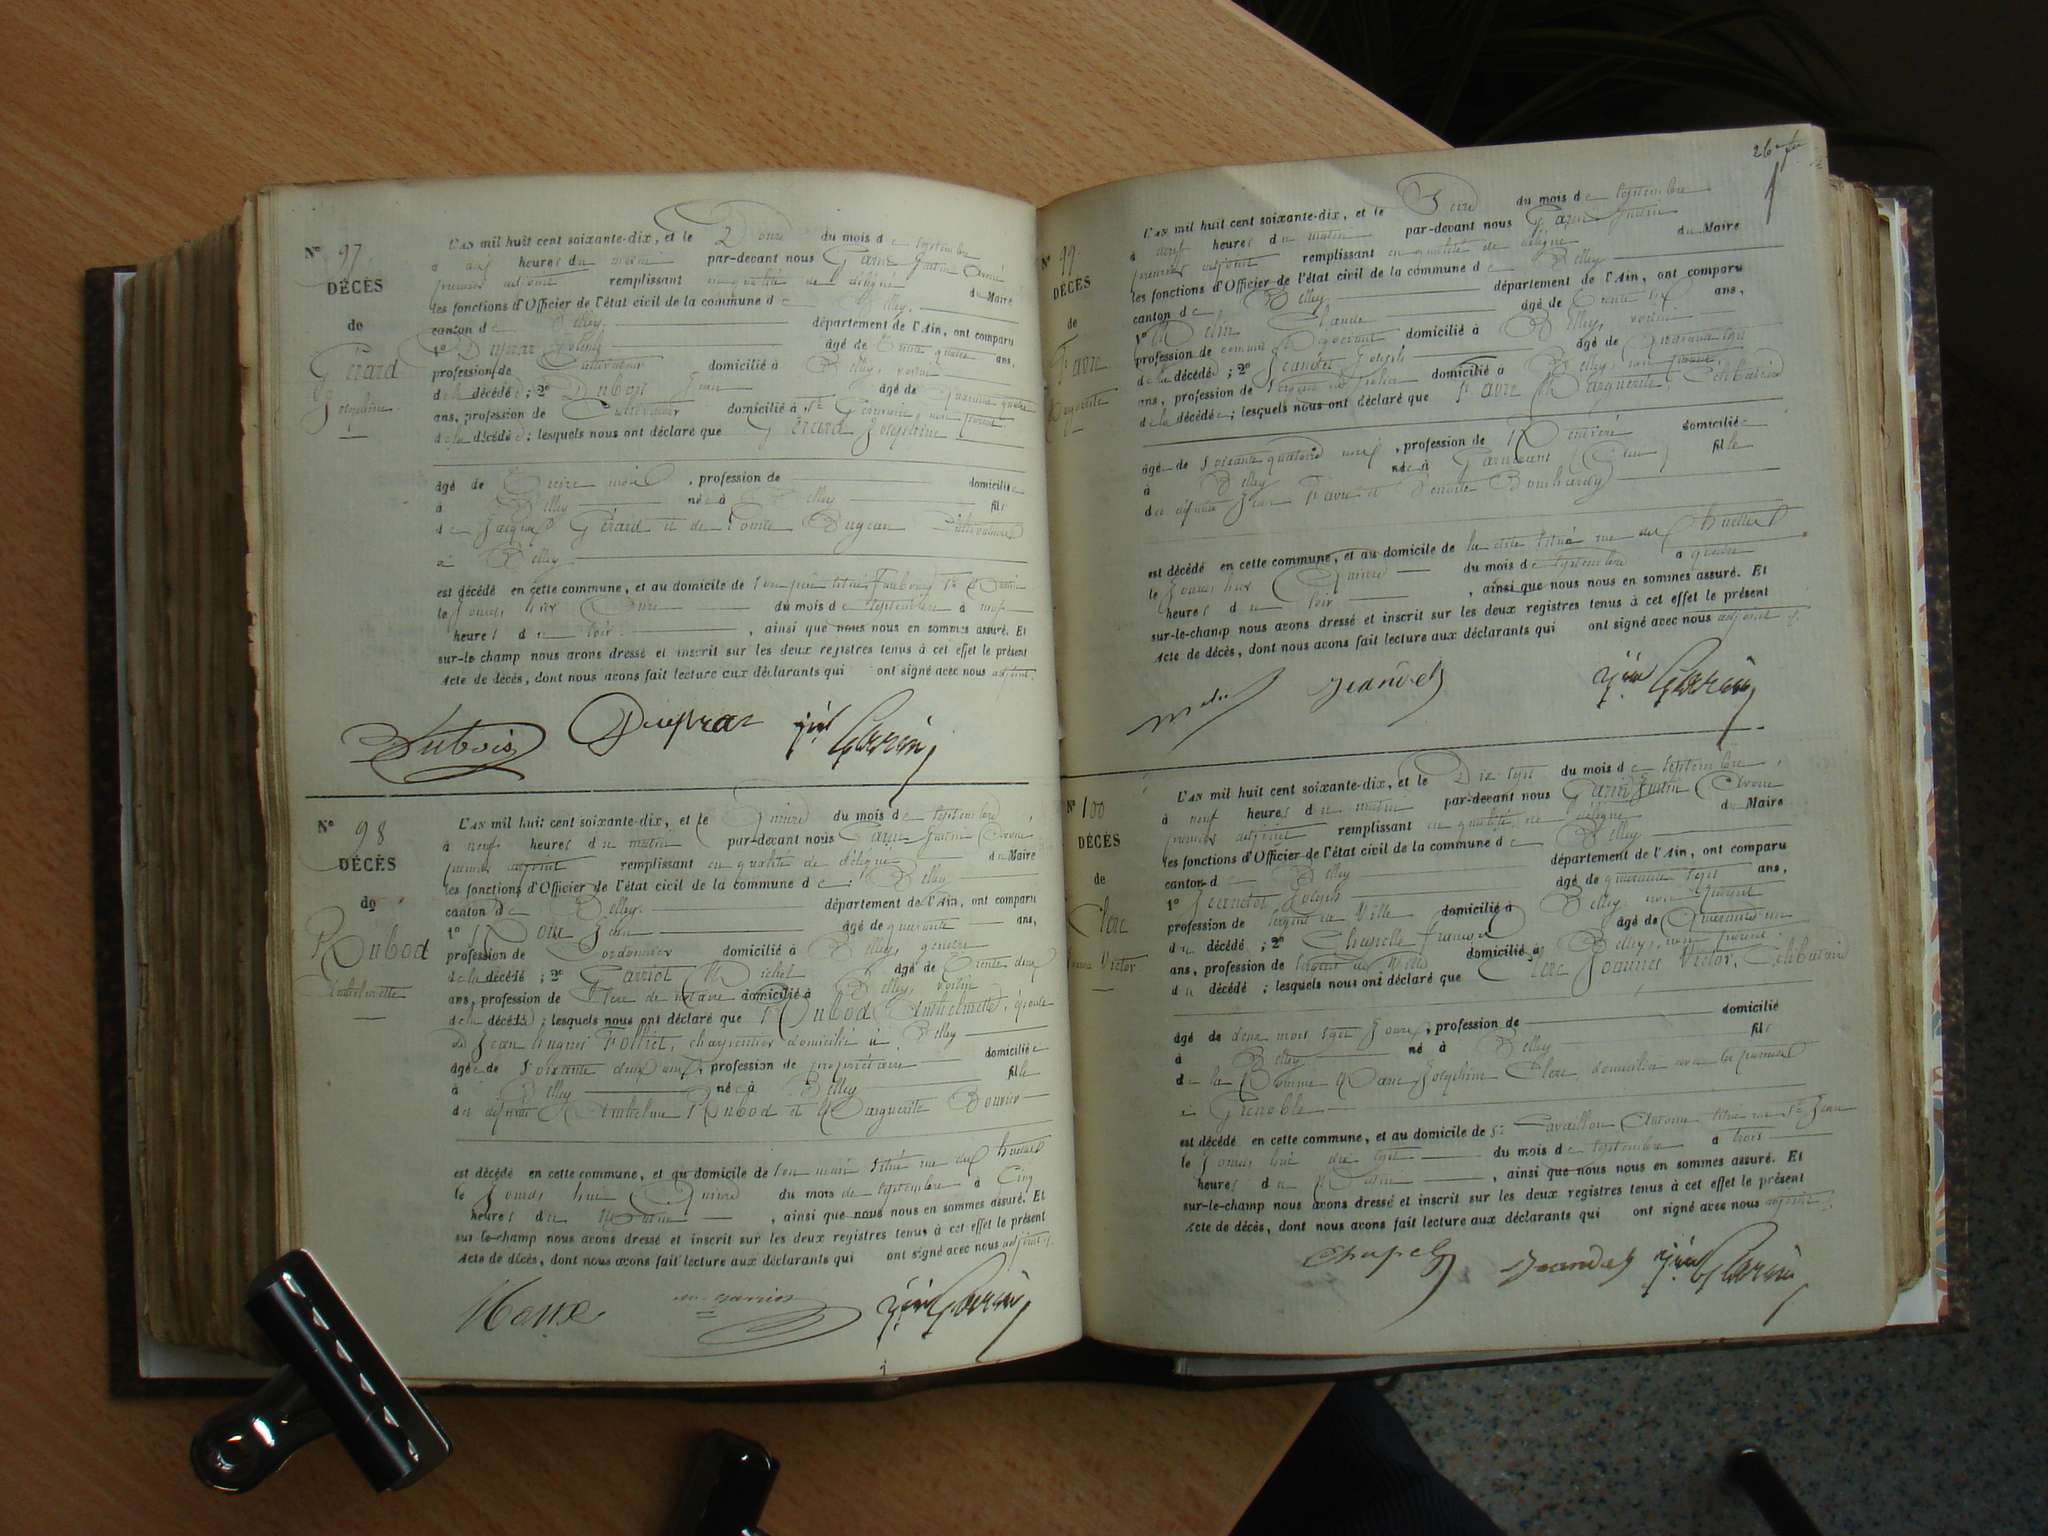 Nº 97
DÉCÈS
de
Gérard
Joséphine
L'AN mil huit cent soixante-dix, et le Douze du mois de septembre
à heures du matin par-devant nous Garin
premier adjoint remplissant en qualité de délégué du Maire
les fonctions d'Officier de l'état civil de la commune de Belley
canton de Belley département de l'Ain, ont comparu
1º âgé de trente quatre ans,
profession de Cultivateur domicilié à Belley, voisin
de la décédée ; 2º Dubois Jean âgé de quarante quatre
ans, profession de Cultivateur domicilié à St Germain, non parent
de la décédée ; lesquels nous ont déclaré que Gérard Joséphine
âgé de Treize mois , profession de domiciliée
à Belley née à Belley fille
de Gérard et de Cultivateurs
à Belley
est décédé en cette commune, et au domicile de son père situé Faubourg St
le jour hier Onze du mois de septembre à neuf
heures du soir , ainsi que nous nous en sommes assuré. Et
sur-le champ nous avons dressé et inscrit sur les deux registres tenus à cet effet le présent
Acte de décès, dont nous avons fait lecture aux déclarants qui ont signé avec nous adjoint.
Dubois Garin
Nº 98
DÉCÈS
de
Rubod
Anthelmette
L'AN mil huit cent soixante-dix, et le Quinze du mois de septembre
à neuf heures du matin par-devant nous Garin
premier adjoint remplissant en qualité de délégué du Maire
les fonctions d'Officier de l'état civil de la commune de Belley
canton de Belley département de l'Ain, ont comparu
1º Roux Jean âgé de quarante ans,
profession de Cordonnier domicilié à Belley, gendre
de la décédée ; 2º Garriot Michel âgé de trente deux
ans, profession de Clerc de notaire domicilié à Belley, voisin
de la décédée ; lesquels nous ont déclaré que Rubod Anthelmette, épouse
de Jean Hugues Folliet, charpentier domicilié à Belley
âgée de soixante deux ans, profession de propriétaire domiciliée
à Belley née à Belley fille
des défunts Anthelme Rubod et Marguerite Bouvier
est décédé en cette commune, et au domicile de son mari situé rue des
le jour hui Quinze du mois de septembre à Cinq
heures du Matin , ainsi que nous nous en sommes assuré. Et
sur-le-champ nous avons dressé et inscrit sur les deux registres tenus à cet effet le présent
Acte de décès, dont nous avons fait lecture aux déclarants qui ont signé avec nous adjoint.
Roux Garin
26
Nº 99
DÉCÈS
de
Favre
Marguerite
L'AN mil huit cent soixante-dix, et le Seize du mois de septembre
à neuf heures du matin par-devant nous Garin
premier adjoint remplissant en qualité de délégué du Maire
les fonctions d'Officier de l'état civil de la commune de Belley
canton de Belley département de l'Ain, ont comparu
1º Claude âgé de trente six ans,
profession de commis domicilié à Belley, voisin
de la décédée ; 2º Jeandet Joseph âgé de quarante sept
ans, profession de sergent de police domicilié à Belley, non parent
de la décédée ; lesquels nous ont déclaré que Favre Marguerite, Célibataire
âgé de soixante quatorze ans, profession de Rentière domiciliée
à Belley née à (Ain) fille
des défunts Jean Favre et
est décédé en cette commune, et au domicile de situé rue des
le jour hier Quinze du mois de septembre à quatre
heures du soir , ainsi que nous nous en sommes assuré. Et
sur-le-champ nous avons dressé et inscrit sur les deux registres tenus à cet effet le présent
Acte de décès, dont nous avons fait lecture aux déclarants qui ont signé avec nous adjoint.
Jeandet Garin
Nº 100
DÉCÈS
de
Clerc
Joannes Victor
L'AN mil huit cent soixante-dix, et le Dix sept du mois de septembre
à neuf heures du matin par-devant nous Garin
premier adjoint remplissant en qualité de délégué du Maire
les fonctions d'Officier de l'état civil de la commune de Belley
canton de Belley département de l'Ain, ont comparu
1º Jeandet Joseph âgé de quarante sept ans,
profession de sergent de Ville domicilié à Belley, non parent
du décédé ; 2º Chapelle François âgé de Quarante un
ans, profession de sergent de Ville domicilié à Belley, non parent
du décédé ; lesquels nous ont déclaré que Clerc Joannes Victor, Célibataire
âgé de deux mois sept jours, profession de domicilié
à Belley né à Belley fils
de la Nommée Marie Joséphine Clerc, domiciliée
à Grenoble
est décédé en cette commune, et au domicile de Sr situé rue St Jean
le jour hui dix sept du mois de septembre à trois
heures du Matin , ainsi que nous nous en sommes assuré. Et
sur-le-champ nous avons dressé et inscrit sur les deux registres tenus à cet effet le présent
Acte de décès, dont nous avons fait lecture aux déclarants qui ont signé avec nous adjoint.
Jeandet Garin